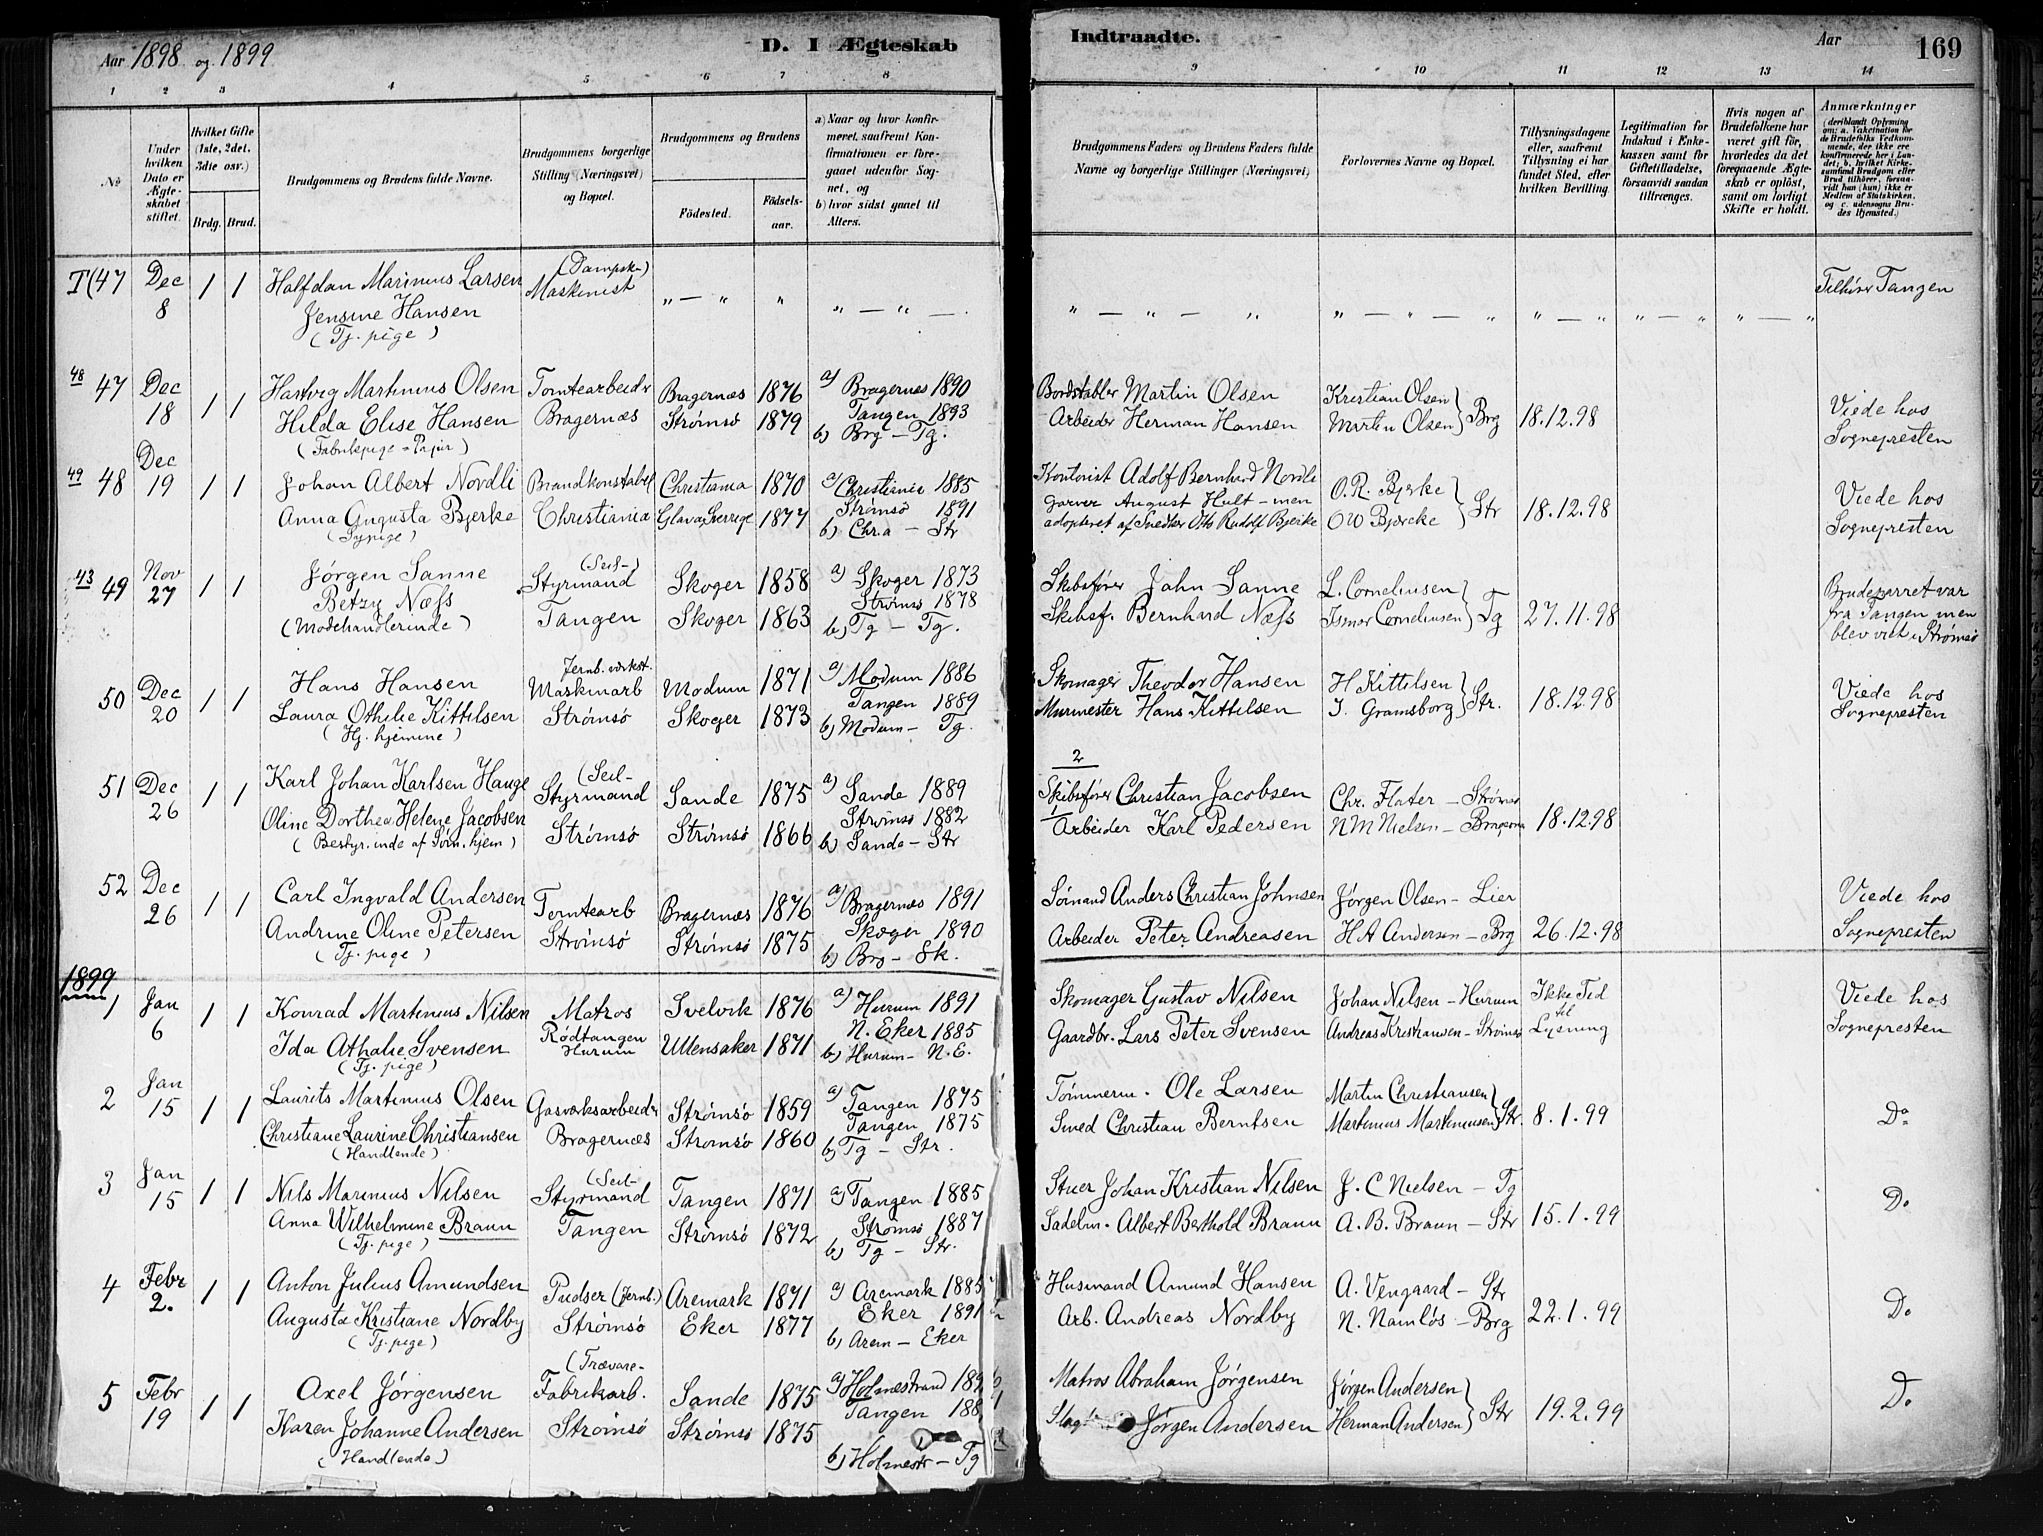 Aar 1898 og 1899
D. I Ægteskab
Indtraadte.
Aar
169
1 2 3 4 5 6 7 8 9 10 11 12 13 14
No
Under hvilken Dato er Ægteskabet stiftet.
Hvilket Gifte (1ste, 2det, 3die osv.)
Brdg. Brud.
Brudgommens og Brudens fulde Navne.
Brudgommens borgerlige Stilling (Næringsvei) og Bopæl.
Brudgommens og Brudens
Födested.
Födselsaar.
a) Naar og hvor konfirmeret, saafremt Konfirmationen er foregaaet udenfor Sognet, og
b) hvor sidst gaaet til Alters.
Brudgommens Faders og Brudens Faders fulde Navne og borgerlige Stillinger (Næringsvei)
Forlovernes Navne og Bopæl.
Tillysningsdagene eller, saafremt Tillysning ei har fundet Sted, efter hvilken Bevilling.
Legitimation for Indskud i Enkekassen samt for Giftetilladelse, forsaavidt saadan tiltrænges.
Hvis nogen af Brudefolkene har været gift før, hvorledes da det foregaaende Ægteskab er opløst, samt om lovligt Skifte er holdt.
Anmærkninger
(deriblandt Oplysning om: a. Vakcination for de Brudefolks Vedkommende, der ikke ere konfirmerede her i Landet; b. hvilket Kirkesamfund Brudgom eller Brud tilhører, forsaavidt han (hun) ikke er Medlem af Statskirken, og c. udensogns Brudes Hjemsted.)
T(47 Dec 8 1 1 Halfdan Marinius Larsen (Dampsk.) Maskinist „ — „ „ „ — „ — „ — „ — „ „ — „ — „ „ — „ „ — „ „ — „ Tilhører Tangen
Jensine Hansen
(Tj. pige)
48 47 Dec 18 1 1 Hartvig Martinius Olsen Tomtearbeider Bragernæs 1876 a) Bragernes 1890 Bordstabler Martin Olsen Kristian Olsen
Hilda Elise Hansen Bragernæs Strømsø 1879 Tangen 1893 Arbeider Herman Hansen Martin Olsen } Brg 18.12.98 Viede hos Sognepresten
(Fabrikpige - Papir) b) Brg - Tg.
49 48 Dec 19 1 1 Johan Albert Nordli Brandkonstabel Christiania 1870 a) Christiania 1885 Kontorist Adolf Bernhard Nordli O. R. Bjerke
Anna Augusta Bjerke Christiania Glava Sverrige 1877 Strømsø 1891 Garver August Hult - men adopteret af Snedker Otto Rudolf Bjerke O W Bjercke } Str 18.12.98 Viede hos Sognepresten
(Sypige) b) Chr.a - Str
43 49 Nov 27 1 1 Jørgen Sanne (Seil-) Styrmand Skoger 1858 a) Skoger 1873 Skibsfører John Sanne L. Corneliusen
Betzy Næss Tangen Skoger 1863 Strømsø 1878 Skibsf. Bernhard Næss Ismar Corneliusen } Tg 27.11.98 Brudeparret var fra Tangen men blev viet i Strømsø
(Modehandlerinde) b) Tg - Tg.
50 Dec 20 1 1 Hans Hansen Jernb. værkst. Maskinarb Modum 1871 a) Modum 1886 Skomager Theodor Hansen H Kittilsen
Laura Othilie Kittilsen Strømsø Skoger 1873 Tangen 1889 Murmester Hans Kittilsen I. Gramsborg } Str. 18.12.98 Viede hos Sognepresten
(Hj. hjemme) b) Modum - Tg.
51 Dec 26 1 1 Karl Johan Karlsen Hauge (Seil- Styrmand Sande 1875 a) Sande 1889 2 Skibsfører Christian Jacobsen Chr. Flater - Strømsø
Oline Dorthea Helene Jacobsen Strømsø Strømsø 1866 Strømsø 1882 1 Arbeider Karl Pedersen N M Nielsen - 18.12.98
(Bestyr.inde af Søm. hjem) b) Sande - Str
52 Dec 26 1 1 Carl Ingvald Andersen Tomtearb Bragernæs 1876 a) Bragernæs 1891 Sømand Anders Christian Johnsen Jørgen Olsen - Lier
Andrine Oline Petersen Strømsø Strømsø 1875 Skoger 1890 Arbeider Peter Andreasen H A Andersen - Brg 26.12.98 Viede hos Sognepresten
(Tj. pige) b) Brg - Sk.
1899
1 Jan 6 1 1 Konrad Martinius Nilsen Matros Svelvik 1876 a) Hurum 1891 Skomager Gustav Nilsen Johan Nilsen - Hurum Ikke Tid til Lysning Viede hos Sognepresten
Ida Athalie Svensen Rødtangen Hurum Ullensaker 1871 N. Eker 1885 Gaardbr. Lars Peter Svensen Andreas Kristiansen - Strømsø
(Tj. pige) b) Hurum - N.E.
2 Jan 15 1 1 Laurits Martinius Olsen Gasværksarbeider Strømsø 1859 a) Tangen 1875 Tømmerm. Ole Larsen Martin Christiansen
Christiane Laurine Christiansen Bragernæs Strømsø 1860 Tangen 1875 Smed Christian Berntsen Martinius Martiniusen } Str. 8.1.99 Do
(Handlende) b) Tg - Str.
3 Jan 15 1 1 Nils Marinius Nilsen (Seil- Styrmand Tangen 1871 a) Tangen 1885 Stuer Johan Kristian Nilsen J. C Nielsen - Tg
Anna Wilhelmine Braun Tangen Strømsø 1872 Strømsø 1887 Sadelm. Albert Berthold Braun A. B. Braun - Str 15.1.99 Do
(Tj. pige) b) Tg - Str.
4 Febr 2. 1 1 Anton Julius Amundsen Pudser (Jernb.) Aremark 1871 a) Aremark 1885 Husmand Amund Hansen A. Vengaard - Str
Augusta Kristiane Nordby Strømsø Eker 1877 Eker 1891 Arb. Andreas Nordby N. Namløs - Brg 22.1.99 Do
(Tj. pige) b) Arem - Eker
5 Febr 19 1 1 Axel Jørgensen (Trævare- Fabrikarb. Sande 1875 a) Holmestrand 189 Matros Abraham Jørgensen Jørgen Andersen
Karen Johanne Andersen Strømsø Strømsø 1875 Tangen 188 Slagt Jørgen Andersen Herman Andersen } Str 19.2.99 Do
(Handlende) b) Holmestr - Tg